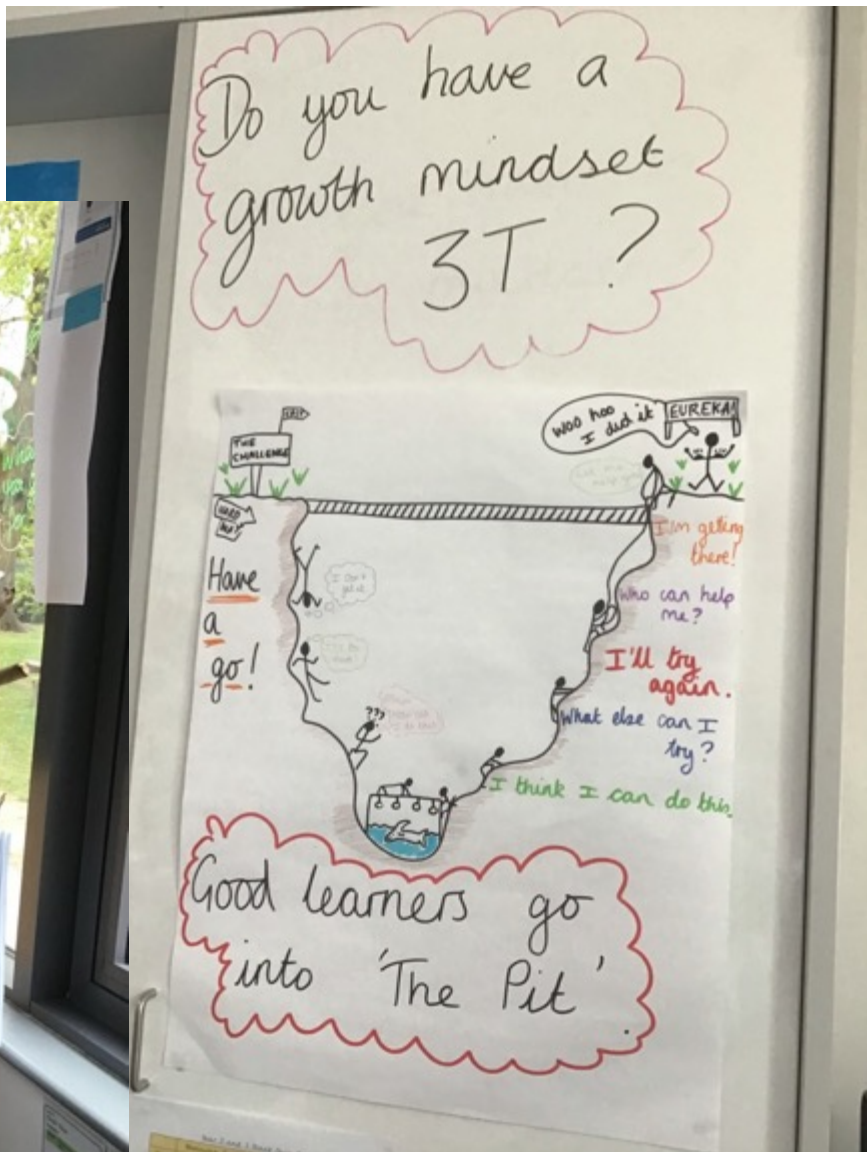 Do you have a
growth mindset
3T ?
THE
CHALLENGE
Woo hoo
I did it
EUREKA!
Have
a
go!
I don't
get it
???
I'm getting
there!
Who can help
me?
I'll try
again.
What else can I
try?
I think I can do this.
Good learners go
into 'The Pit'.